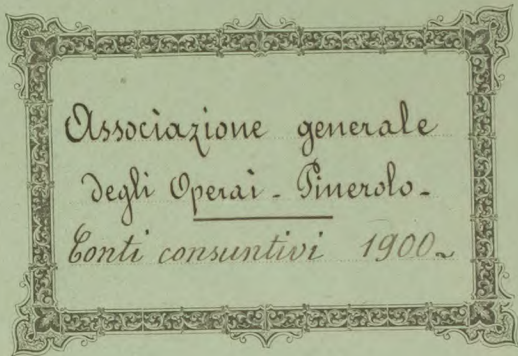 Associazione generale
degli Operai - Pinerolo -
Conti consuntivi 1900~